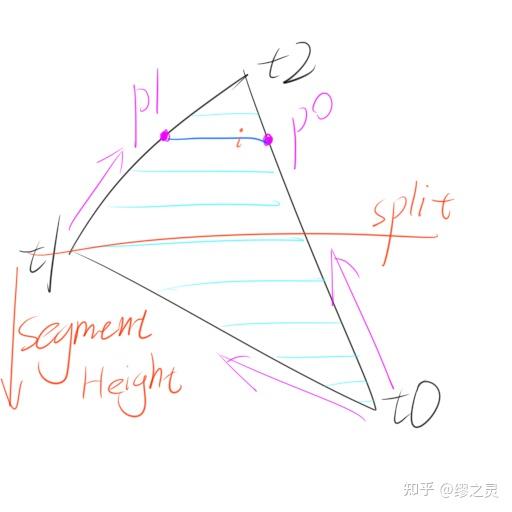 t2
p1
p0
i
split
t1
segment
Height
t0
知乎 @缪之灵